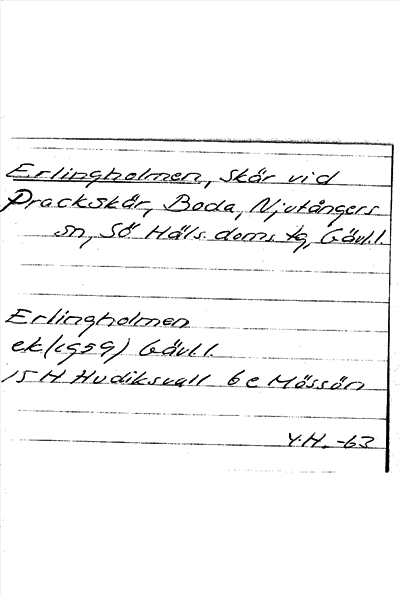 Erlingholmen, skär vid
Prackskär, Boda, Njutångers
sn, Sö. Häls. doms. tg, Gävl.l.
Erlingholmen
ek (1959) Gävl.l.
15 H Hudiksvall 6 c Mössön
Y.H. -63